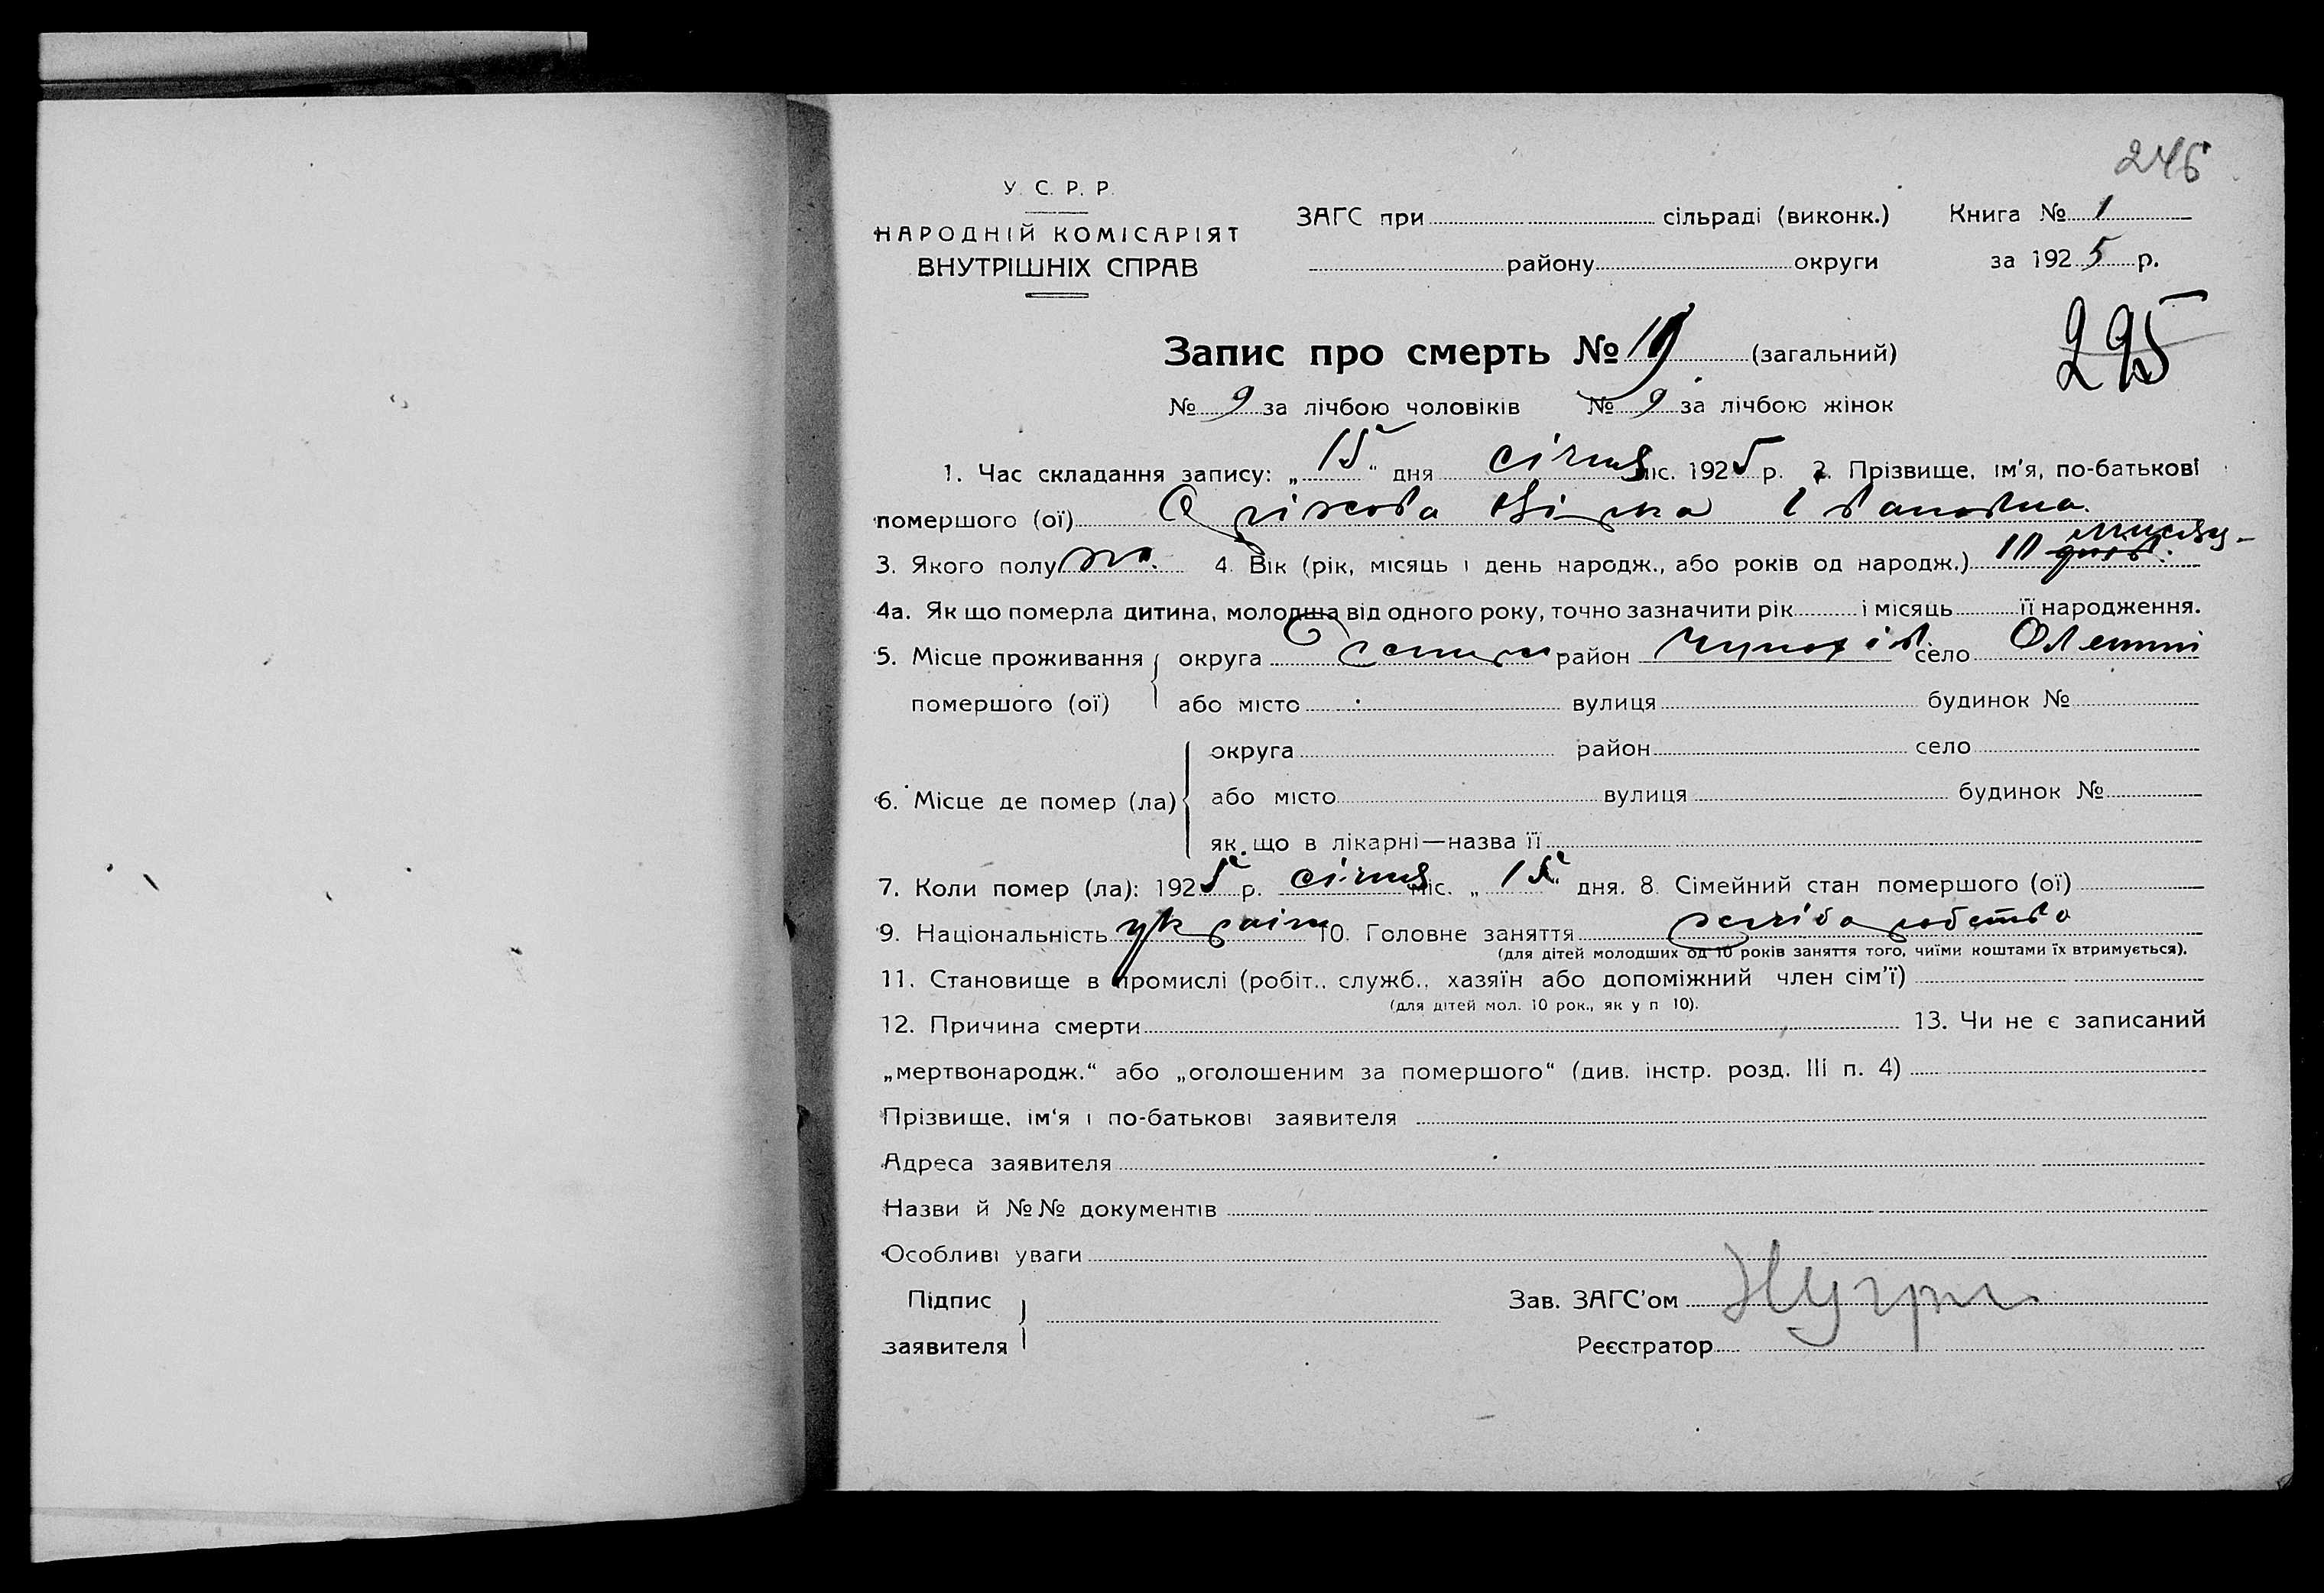 246
У. С. Р. Р.
НАРОДНІЙ КОМІСАРІЯТ
ВНУТРІШНІХ СПРАВ
ЗАГС при сільраді (виконк.) Книга № 1
району округи за 1925 р.
295
Запис про смерть № (загальний)
№ 9 за лічбою чоловіків № 9 за лічбою жінок
1. Час складання запису: „15“ дня січня міс. 1925 р. 2. Прізвище, ім'я, по-батькові
помершого (ої) Івановна
3. Якого полу ж. 4. Вік (рік, місяць і день народж., або років од народж.) 10
4а. Як що померла дитина, молодша від одного року, точно зазначити рік і місяць її народження.
5. Місце проживання округа район село
помершого (ої) або місто вулиця будинок №
округа район село
6. Місце де помер (ла) або місто вулиця будинок №
як що в лікарні—назва її
7. Коли помер (ла): 1925 р. січня міс. „15“ дня. 8. Сімейний стан помершого (ої)
9. Національність україн 10. Головне заняття хліборобство
(для дітей молодших од 10 років заняття того, чиїми коштами їх втримується).
11. Становище в промислі (робіт., служб., хазяїн або допоміжний член сім'ї)
(для дітей мол. 10 рок., як у п 10).
12. Причина смерти 13. Чи не є записаний
„мертвонародж.“ або „оголошеним за помершого“ (див. інстр. розд. III п. 4)
Прізвище, ім'я і по-батькові заявителя
Адреса заявителя
Назви й №№ документів
Особливі уваги
Підпис Зав. ЗАГС'ом
заявителя Реєстратор